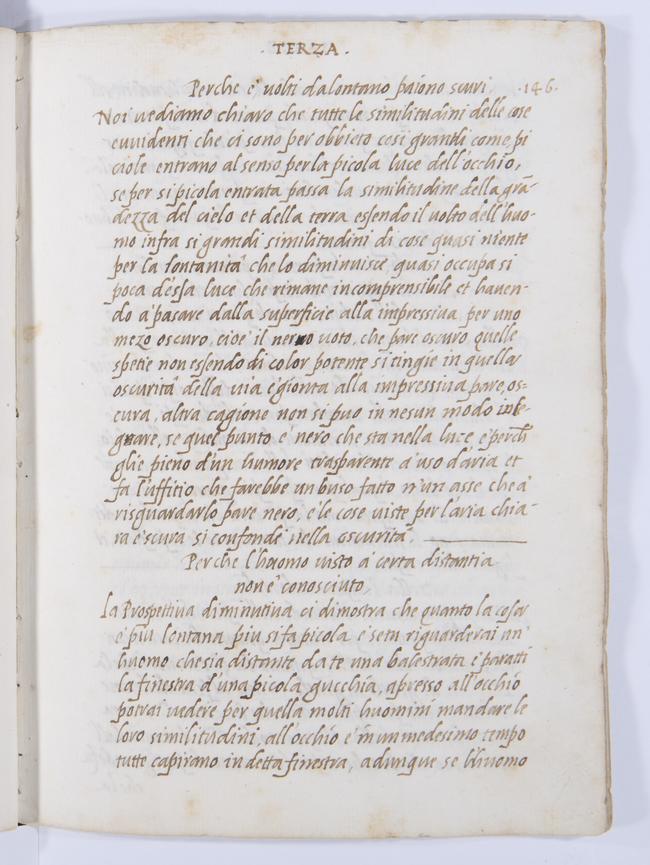 . TERZA .
Perche e' uolti da lontano paiono scuri, .146.
Noi uediamo chiaro che tutte le similitudini delle cose
euuidenti che ci sono per obbieto cosi grandi come pi
ciole entrano al senso per la picola luce dell'occhio,
se per si picola entrata passa la similitudine della grã-
dezza del cielo et della terra essendo il uolto dell'huo-
mo infra si grandi similitudini di cose quasi niente
per la lontanità che lo diminuisce, quasi occupa si
poca d'essa luce che rimane incomprensibile et hauen-
do a' pasare dalla superficie alla impressiua per uno
mezo oscuro, cioe' il neruo uoto, che pare oscuro quelle
spetie non essendo di color potente si tingie in quella
oscurità della uia e gionta alla impressiua pare, os-
cura, altra cagione non si puo in nesun modo
se quel punto e' nero che sta nella luce, e' perch
gli e pieno d'un humore trasparente a' uso d'aria et
fa l'uffitio che farebbe un buso fatto n'un asse che a'
risguardarlo pare nero, e' le cose uiste per l'aria chia-
ra e' scura si confonde nella oscurita.
Perche l'huomo uisto a' certa distantia
non e' conosciuto,
la Prospettiua diminutiua ci dimostra che quanto la cosa
e' piu lontana piu si fa picola e' se tu riguarderai un'
huomo che sia distante da te una balestrata e' paratti
la finestra d'una picola gucchia, apresso all'occhio
potrai uedere per quella molti huomini mandare le
loro similitudini, all'occhio e' in un medesimo tempo
tutte capirano in detta finestra, adunque se l'huomo